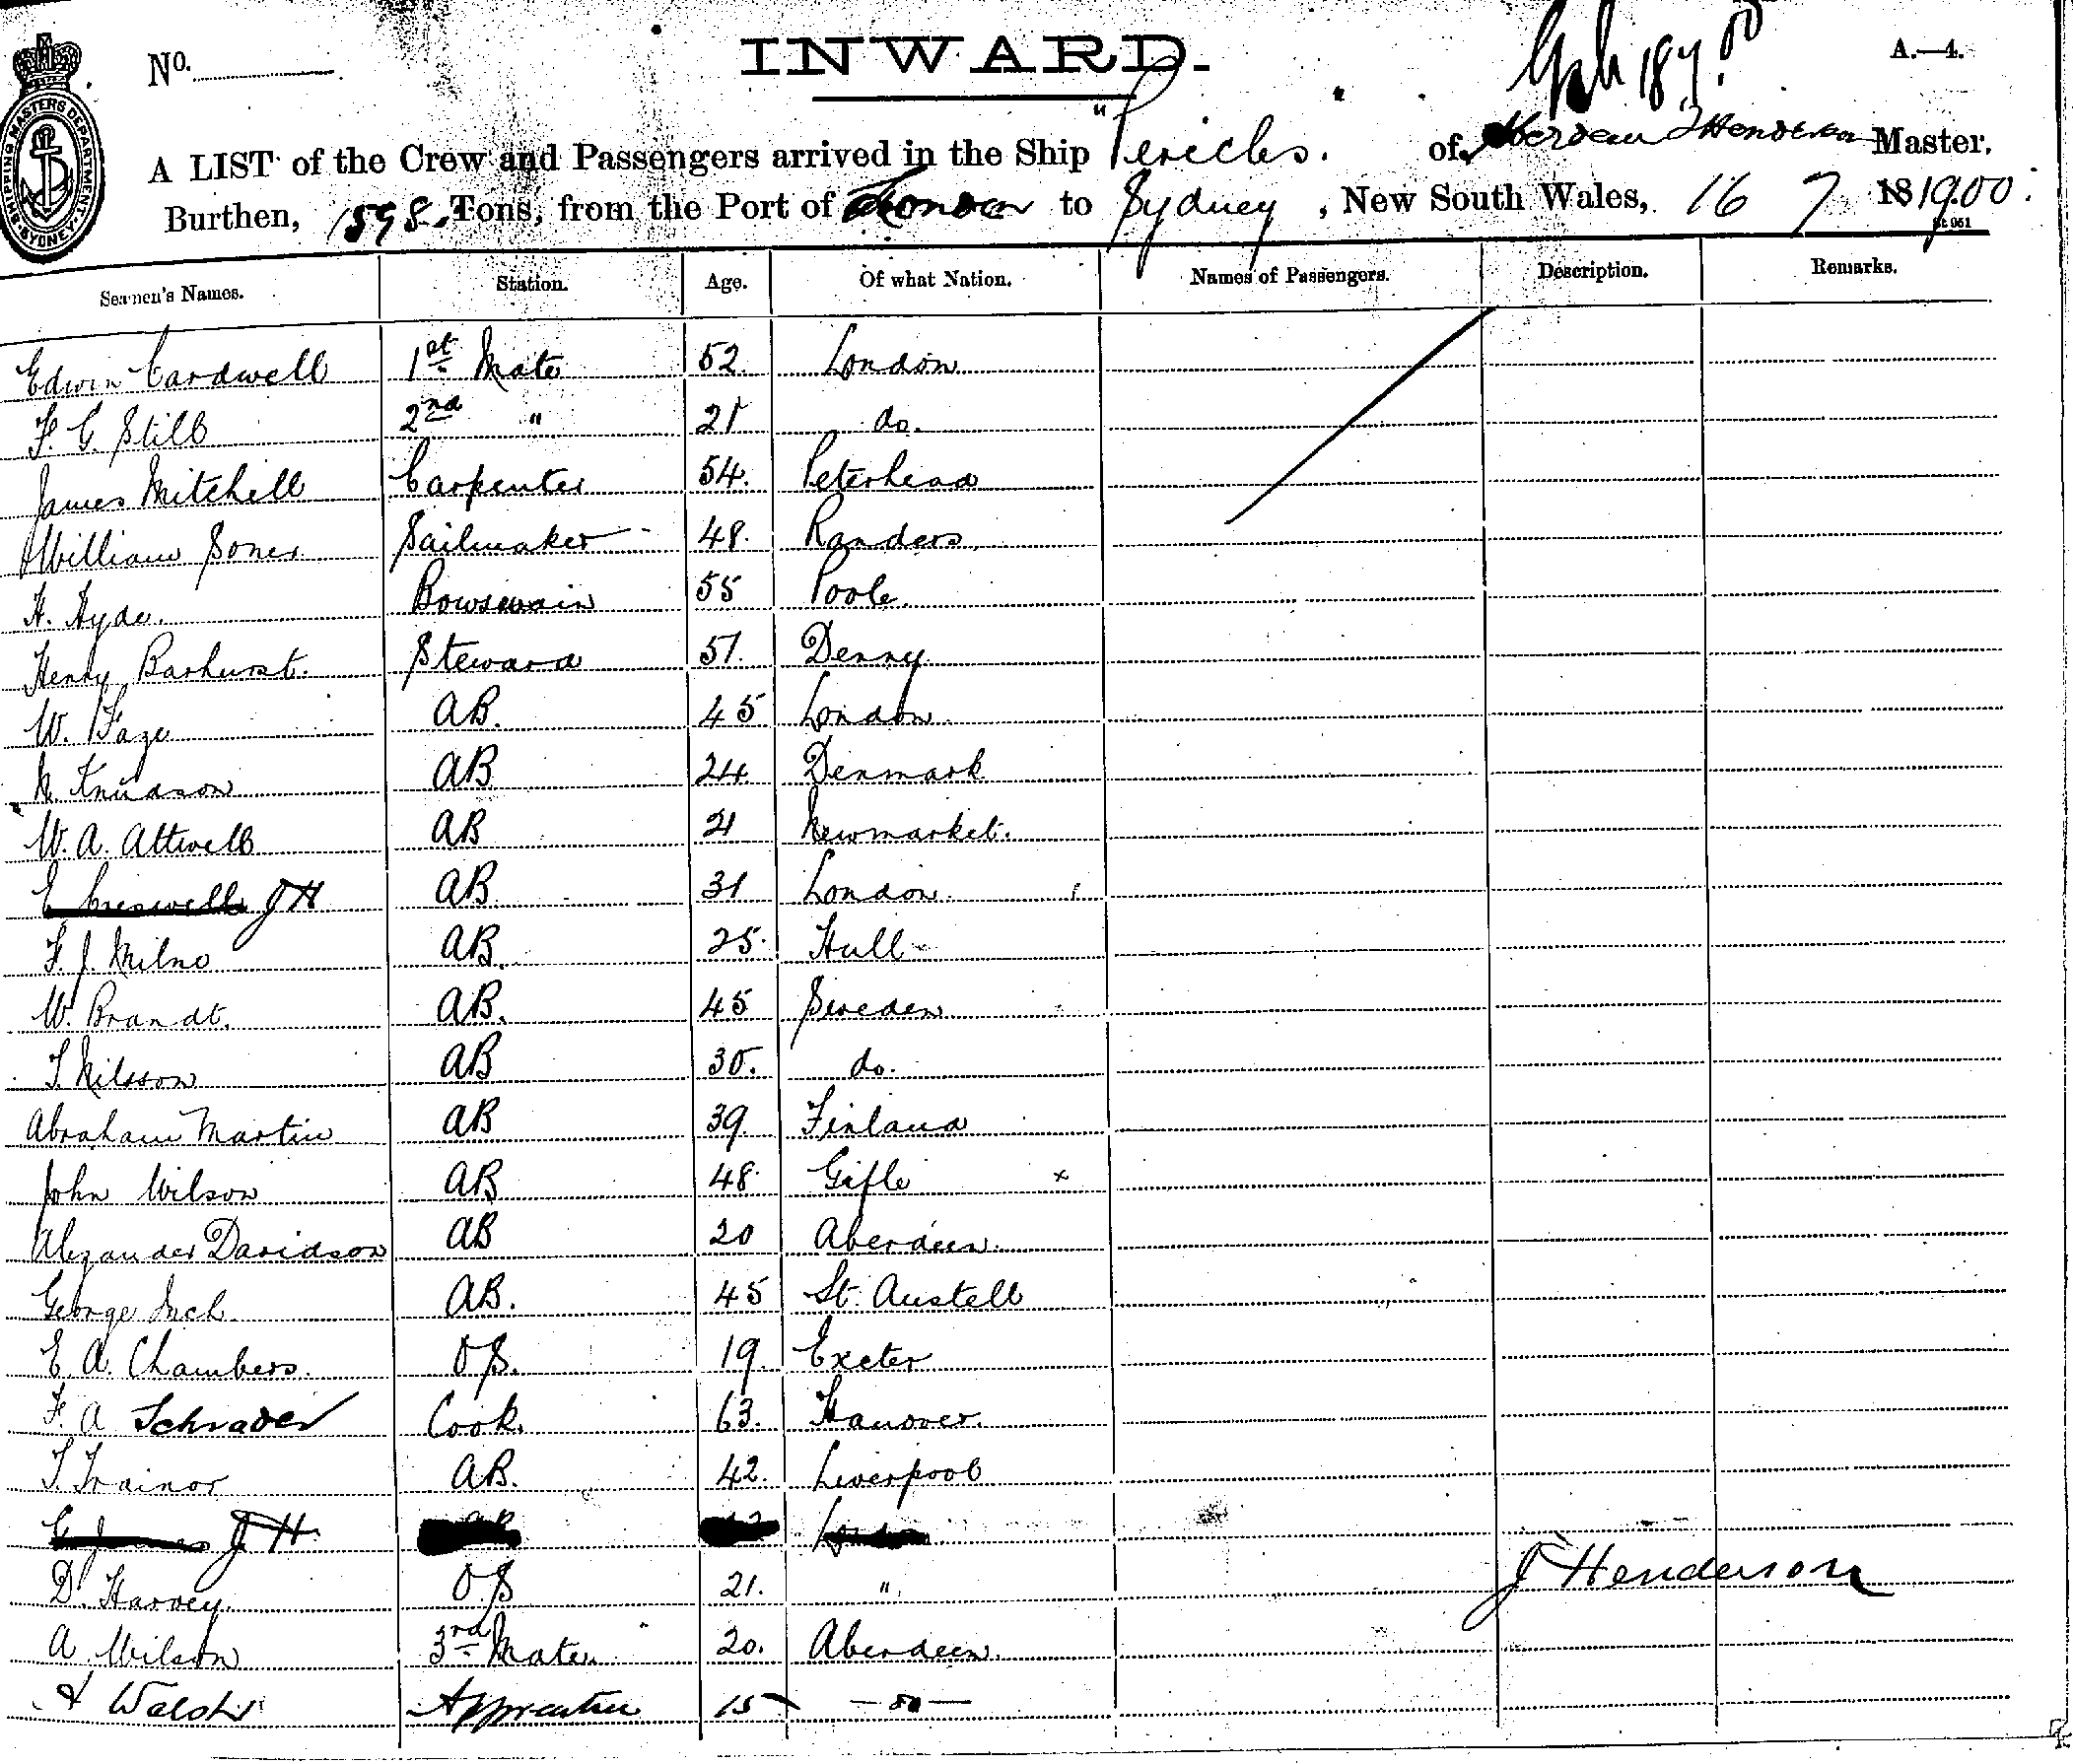 INWARD.
No.
A.—4.
SHIPPING MASTERS DEPARTMENT SYDNEY
A LIST of the Crew and Passengers arrived in the Ship "Pericles. of Aberdeen J Henderson Master,
Burthen, 1598 Tons, from the Port of London to Sydney, New South Wales, 16 7 1900
Seamen's Names. Station. Age. Of what Nation. Names of Passengers. Description. Remarks.
Edwin Cardwell 1st Mate 52 London
F. G. Still 2nd " 21 do.
James Mitchell Carpenter 54. Peterhead
William Soner Sailmaker 48. Randers
H. Hyde. Bowswain 55 Poole
Henry Barhurst. Steward 51. Denny
W. AB. 45 London
N. Knudson AB 24 Denmark
W. A. Attwell AB 21 Newmarket.
E Creswell JH AB 31 London
F. J. Milne AB. 25. Hull
W. Brandt. AB. 45 Sweden
T. Nilsson AB 30. do.
Abraham Martin AB 39 Finland
John Wilson AB 48. Gifle x
Alexander Davidson AB 20 Aberdeen.
George Inch. AB. 45 St. Austell
E. A. Chambers. OS. 19. Exeter
F. A Schrader Cook. 63. Hanover.
T. Trainor AB. 42. Liverpool
JH.
D. Harvey. OS 21. "
J Henderson
A Wilson 3rd Mate. 20. Aberdeen.
A Walsh Apprentice 15 — do —